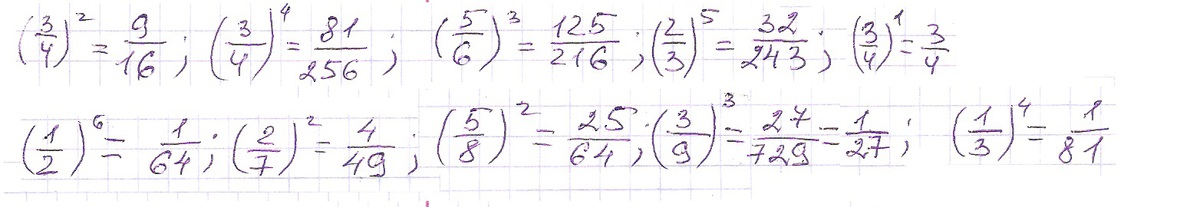 (3/4)² = 9/16; (3/4)⁴ = 81/256; (5/6)³ = 125/216; (2/3)⁵ = 32/243; (3/4)¹ = 3/4
(1/2)⁶ = 1/64; (2/7)² = 4/49; (5/8)² = 25/64; (3/9)³ = 27/729 = 1/27; (1/3)⁴ = 1/81